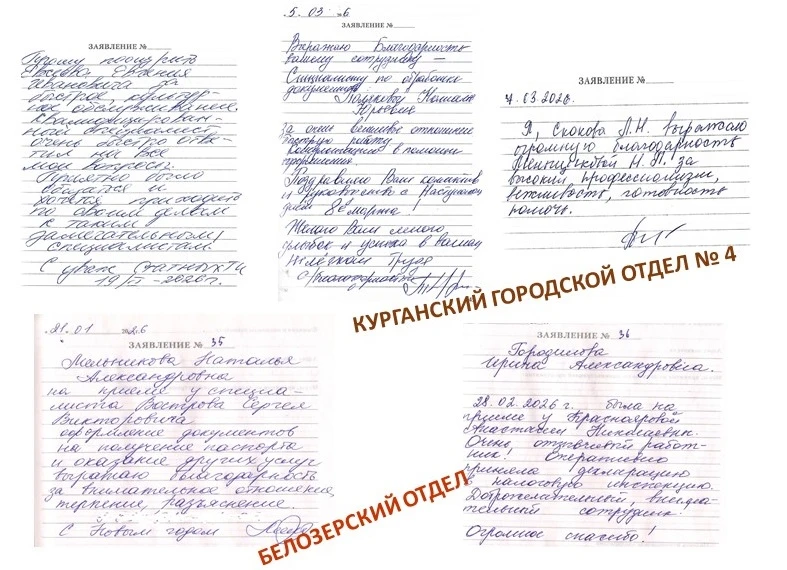 ЗАЯВЛЕНИЕ №
Прошу поощрить
Евгения
Ивановича за
быстрое, культур-
ное обслуживание.
Квалифицирован-
ный специалист,
очень быстро отве-
тил на все
мои вопросы.
Приятно было
общаться и
хочется приходить
по своим делам
к таким
замечательным
специалистам
С уваж.
5.03 26
ЗАЯВЛЕНИЕ №
Выражаю благодарность
вашему сотруднику —
Специалисту по обработке
документов
Поляковой Наталье
Юрьевне
За очень вежливое отношение
быструю работу
консультацию в помощи
оформления.
Поздравляю Ваш коллектив
и руководство с наступающим
днём 8ое марта!
Желаю Вам много
улыбок и успеха в вашем
нелёгком труде
с благодарностью
ЗАЯВЛЕНИЕ №
7.03.2026.
Я, Скокова Л.Н. выражаю
огромную благодарность
Н.П. за
высокий профессионализм,
вежливость, готовность
помочь.
КУРГАНСКИЙ ГОРОДСКОЙ ОТДЕЛ № 4
21.01 2026
ЗАЯВЛЕНИЕ № 35
Мельникова Наталья
Александровна
на приеме у специа-
листа Вострова Сергея
Викторовича
оформление документов
на получение паспорта
и оказание других услуг
выражаю благодарность
за внимательное отношение,
терпение, разъяснение.
С Новым годом
ЗАЯВЛЕНИЕ № 36
Горозилова
Ирина Александровна.
28.02.2026 г. была на
приеме у Краснояровой
Анастасии Николаевны.
Очень отзывчивый работ-
ник! Оперативно
приняла декларацию
в налоговую инспекцию.
Доброжелательный, внима-
тельный сотрудник.
Огромное спасибо!
БЕЛОЗЕРСКИЙ ОТДЕЛ